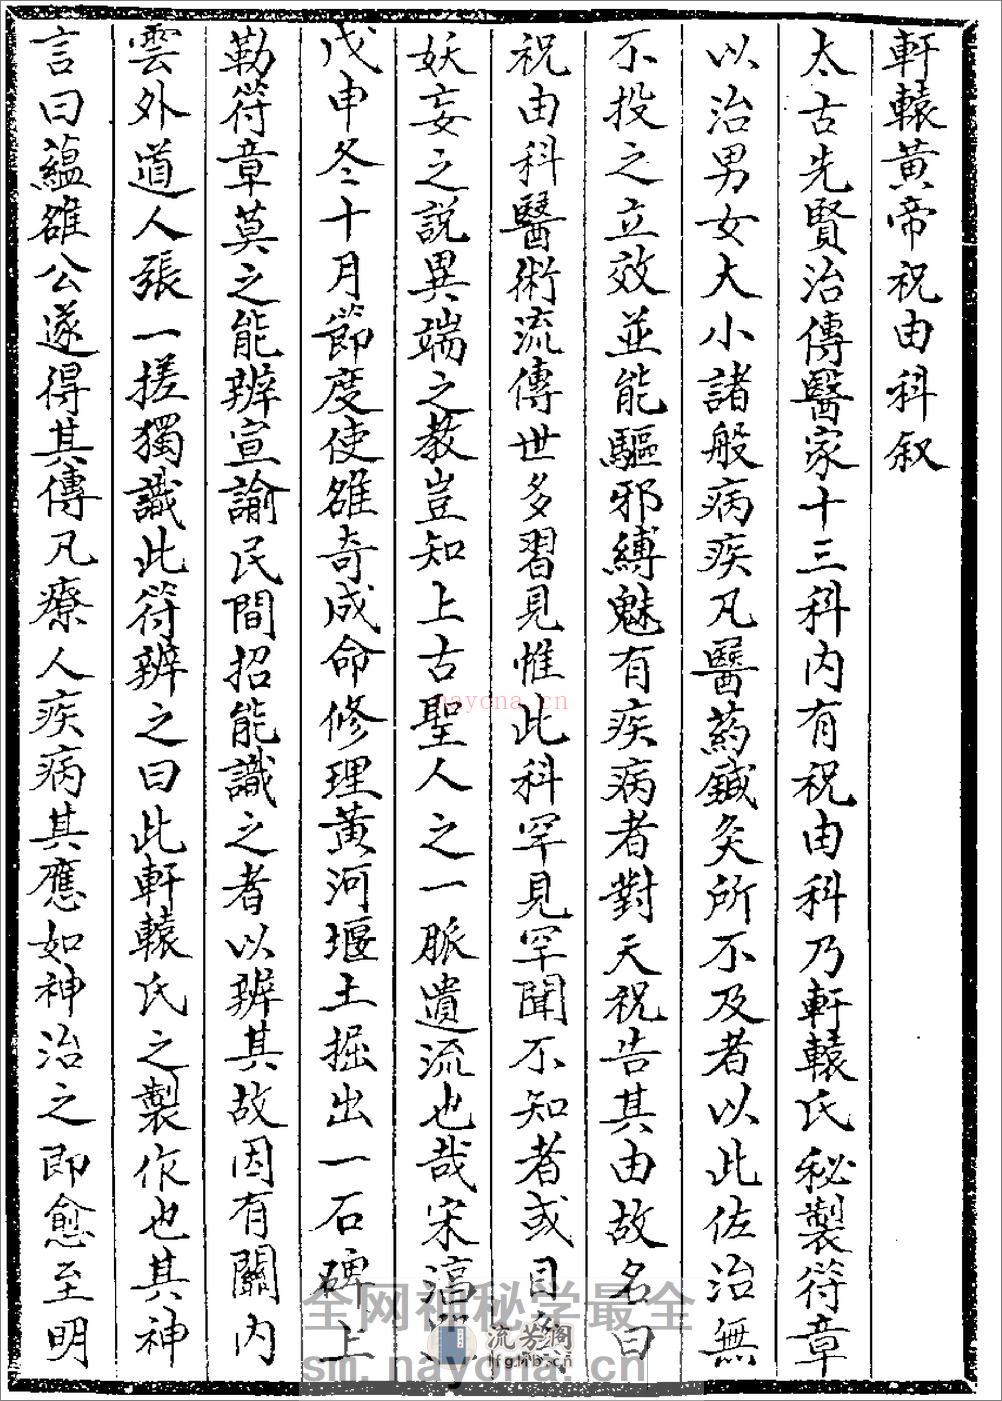 軒轅黃帝祝由科叙
太古先賢治傳醫家十三科内有祝由科乃軒轅氏秘製符章
以治男女大小諸般病疾凡醫药鍼灸所不及者以此佐治無
不投之立效並能驅邪縛魅有疾病者對天祝告其由故名曰
祝由科醫術流傳世多習見惟此科罕見罕聞不知者或目
妖妄之說異端之教豈知上古聖人之一脈遺流也哉宋淳
戊申冬十月節度使雒奇成命修理黃河堰土掘出一石碑上
勒符章莫之能辨宣諭民間招能識之者以辨其故因有關内
雲外道人張一搓獨識此符辨之曰此軒轅氏之製作也其神
言曰蘊雒公遂得其傳凡療人疾病其應如神治之即愈至明
nayona.cn
全网神秘学最全
流芳阁
lfglib.cn
sm.nayona.cn